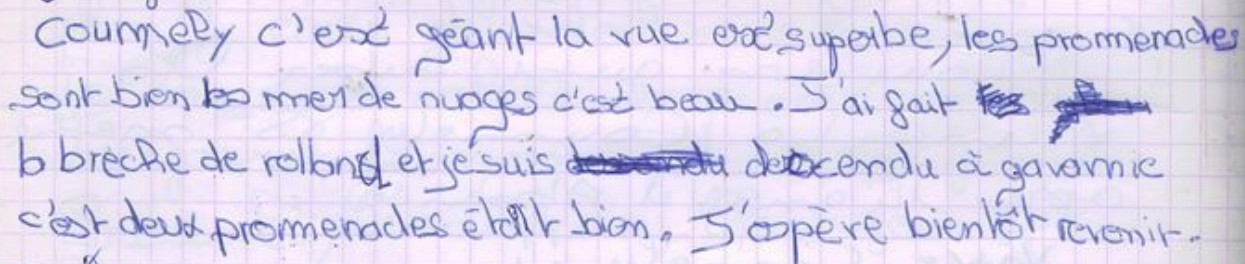 Coumely c'est géant la vue est superbe, les promenades
sont bien la mer de nuages c'est beau. J'ai fait
la brèche de rolland et je suis descendu à gavarnie
c'est deux promenades était bien. J'espère bientôt revenir.